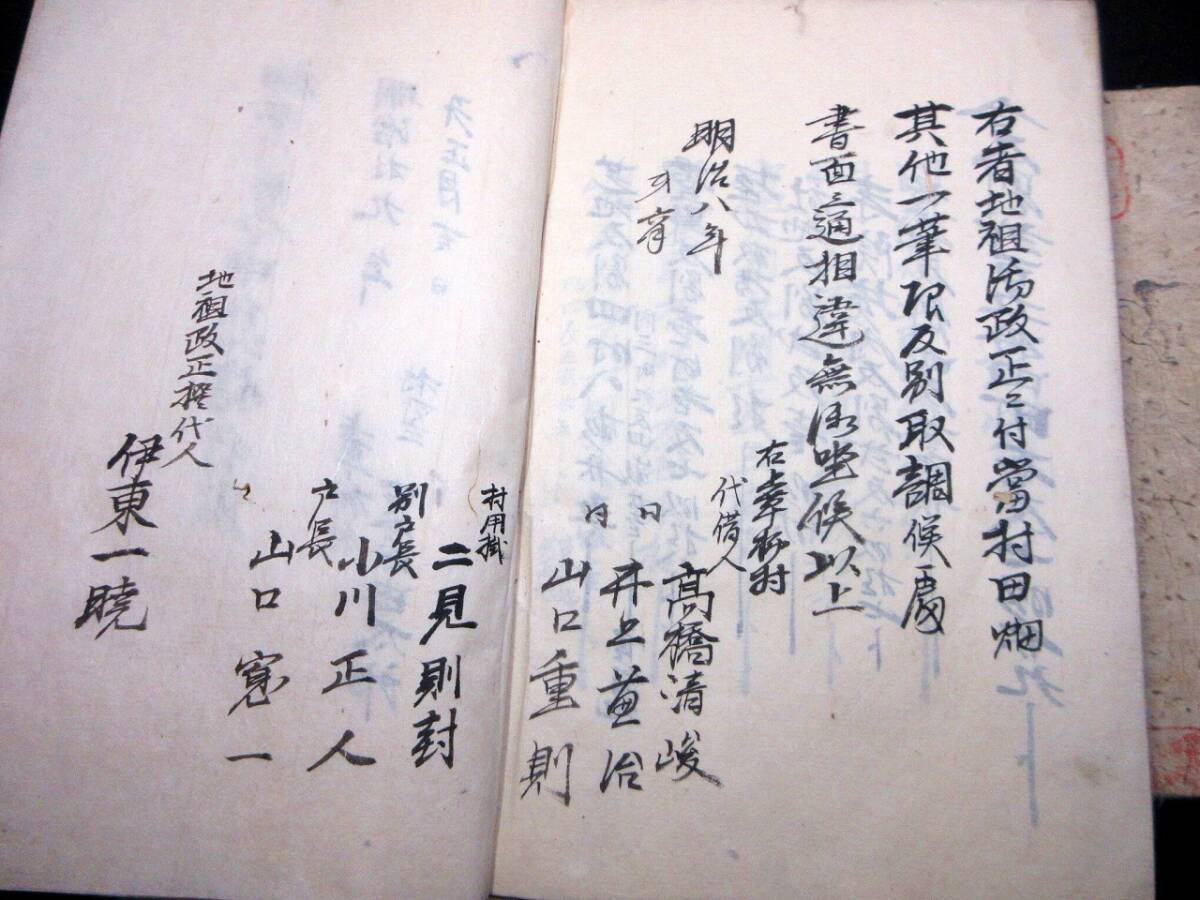 右者地租御改正ニ付當村田畑
其他一筆限反別取調候處
書面之通相違無御坐候以上
明治八年
右
村
代借人
高橋清峻
日
井上兼治
日
山口重則
村用掛
二見則封
副戸長
小川正人
戸長
山口寛一
地租改正惣代人
伊東一曉